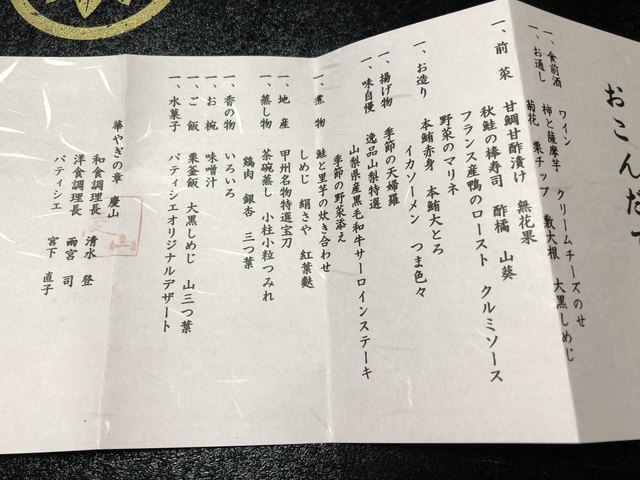 おこんだて
一、食前酒　ワイン
一、お通し　柿と薩摩芋　クリームチーズのせ
菊花　栗チップ　敷大根　大黒しめじ
一、前菜　甘鯛甘酢漬け　無花果
秋鮭の棒寿司　酢橘　山葵
フランス産鴨のロースト　クルミソース
野菜のマリネ
一、お造り　本鮪赤身　本鮪大とろ
イカソーメン　つま色々
一、揚げ物　季節の天婦羅
一、味自慢　逸品山梨特選
山梨県産黒毛和牛サーロインステーキ
季節の野菜添え
一、煮物　鮭と里芋の炊き合わせ
しめじ　絹さや　紅葉麩
一、地産　甲州名物特選宝刀
一、蒸し物　茶碗蒸し　小柱小粒つみれ
鶏肉　銀杏　三つ葉
一、香の物　いろいろ
一、お椀　味噌汁
一、ご飯　栗釜飯　大黒しめじ　山三つ葉
一、水菓子　パティシエオリジナルデザート
華やぎの章　慶山
和食調理長　清水　登
洋食調理長　雨宮　司
パティシエ　宮下　直子